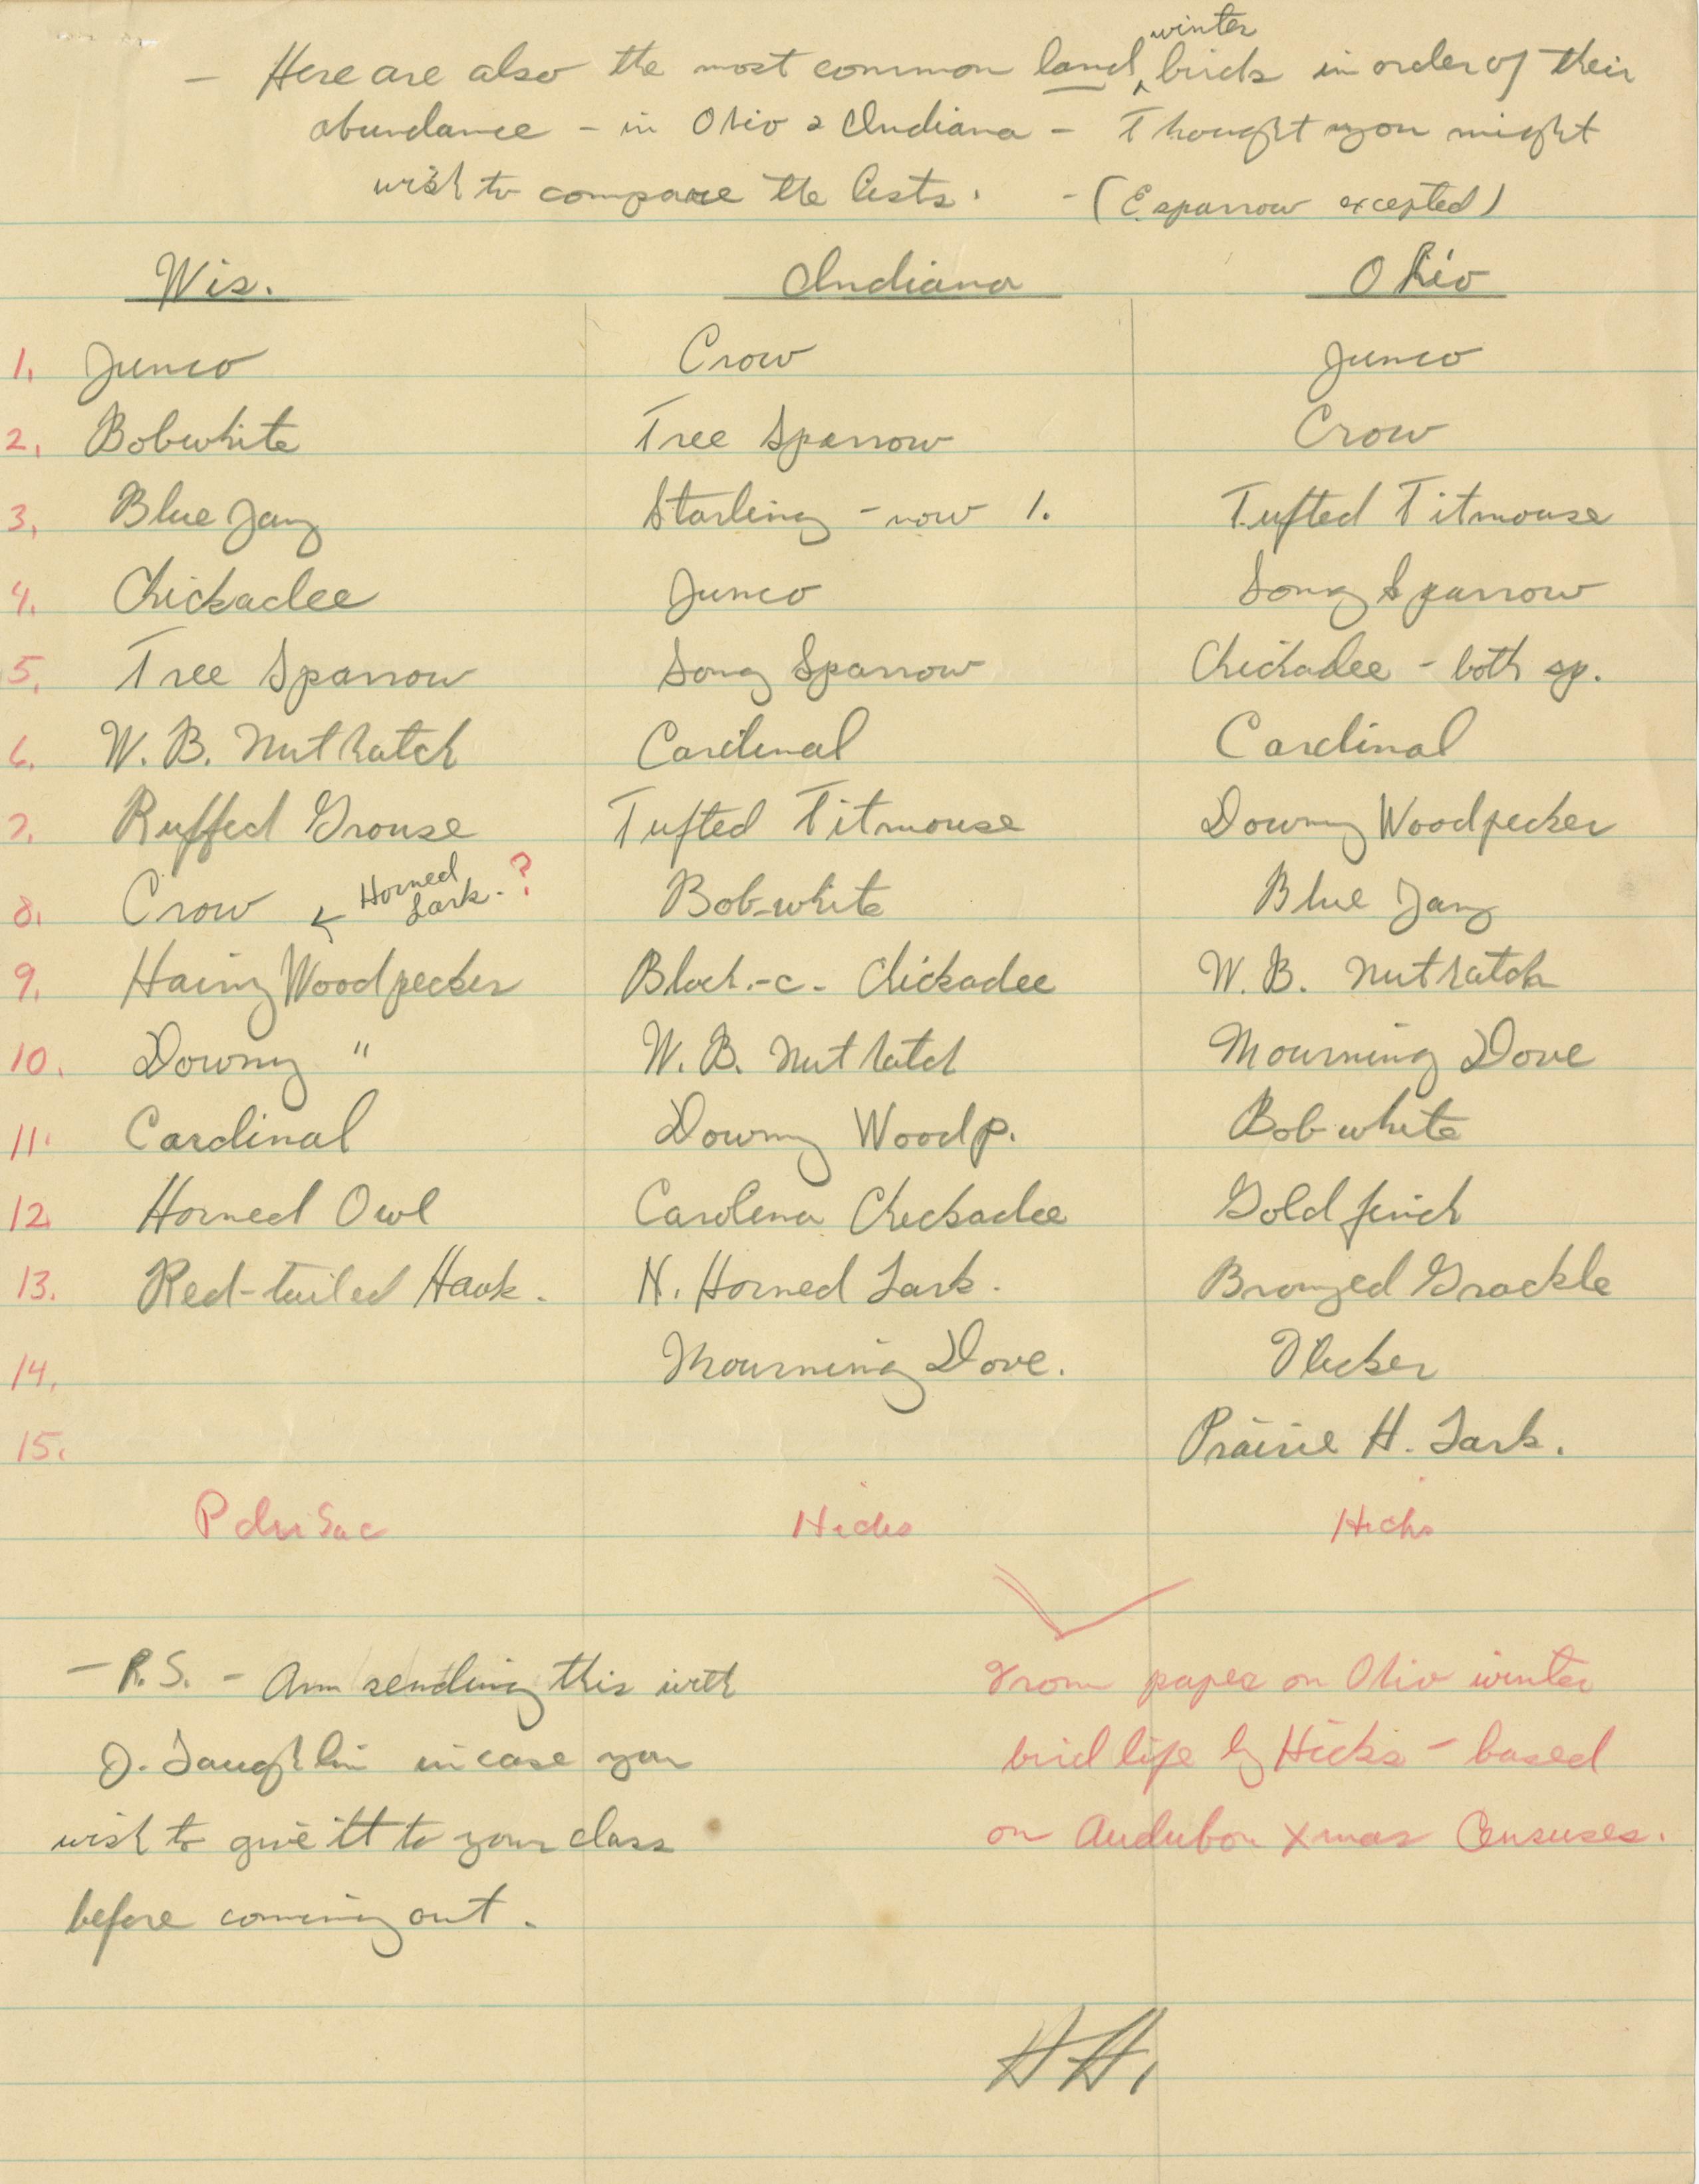 – Here are also the most common land winter birds in order of their
abundance – in Ohio & Indiana – Thought you might
wish to compare the lists. – (E. sparrow excepted)
Wis. Indiana Ohio
1. Junco Crow Junco
2. Bobwhite Tree Sparrow Crow
3. Blue Jay Starling – now 1. Tufted Titmouse
4. Chickadee Junco Song Sparrow
5. Tree Sparrow Song Sparrow Chickadee – both sp.
6. W. B. Nuthatch Cardinal Cardinal
7. Ruffed Grouse Tufted Titmouse Downy Woodpecker
8. Crow ← Horned Lark. ? Bob-white Blue Jay
9. Hairy Woodpecker Black.-c. Chickadee W. B. Nuthatch
10. Downy " W. B. Nuthatch Mourning Dove
11. Cardinal Downy Woodp. Bob-white
12. Horned Owl Carolina Chickadee Goldfinch
13. Red-tailed Hawk. N. Horned Lark. Bronzed Grackle
14. Mourning Dove. Flicker
15. Prairie H. Lark.
Hicks Hicks
– P.S. – Am sending this with
J. Laughlin in case you
wish to give it to your class
before coming out.
From paper on Ohio winter
bird life by Hicks – based
on Audubon Xmas Censuses.